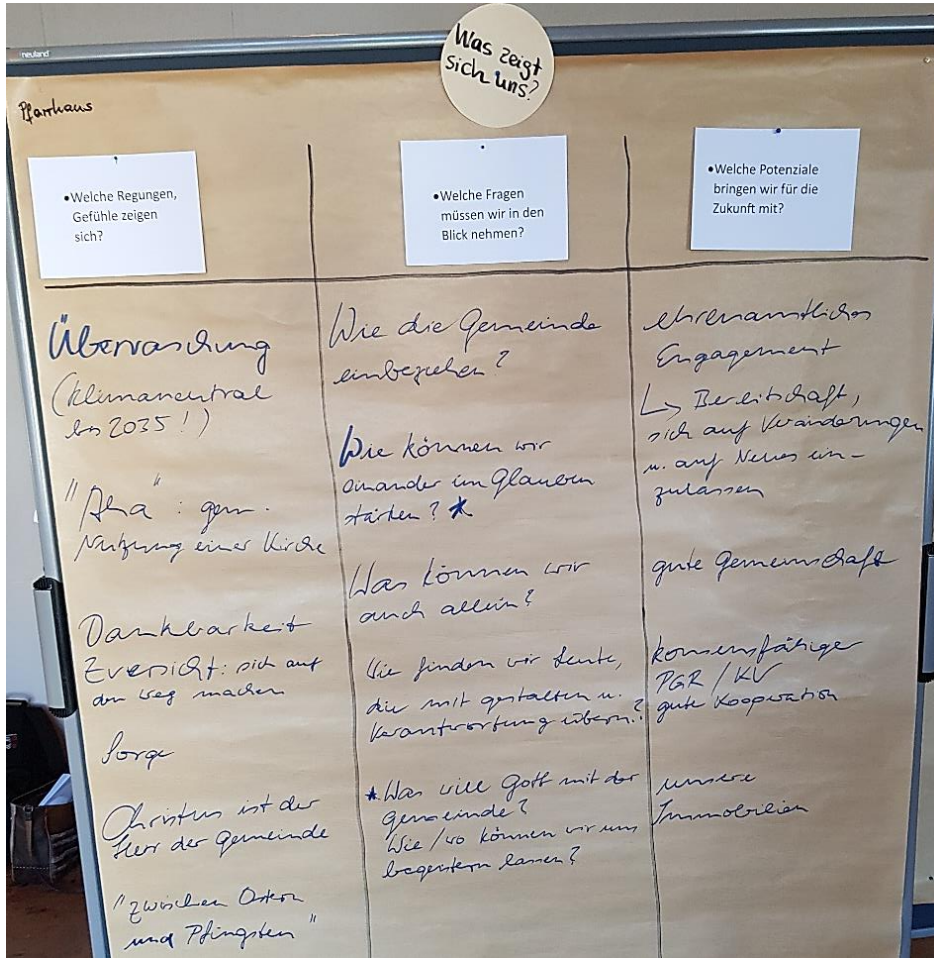 neuland
Was zeigt
sich uns?
Pfarrhaus
•Welche Regungen,
Gefühle zeigen
sich?
Überraschung
(klimaneutral
bis 2035!)
"Aha": gem.
Nutzung einer Kirche
Dankbarkeit
Zversicht: sich auf
den Weg machen
Sorge
Christus ist der
Herr der Gemeinde
"zwischen Ostern
und Pfingsten"
•Welche Fragen
müssen wir in den
Blick nehmen?
Wie die Gemeinde
einbeziehen?
Wie können wir
einander im Glauben
stärken? *
Was können wir
auch allein?
Wie finden wir Leute,
die mit gestalten u.
Verantwortung übern.?
* Was will Gott mit der
Gemeinde?
Wie/wo können wir uns
begeistern lassen?
•Welche Potenziale
bringen wir für die
Zukunft mit?
ehrenamtliches
Engagement
↳ Bereitschaft,
sich auf Veränderungen
u. auf Neues ein-
zulassen
gute Gemeinschaft
konsensfähiger
PGR / KV
gute Kooperation
unsere
Immobilien